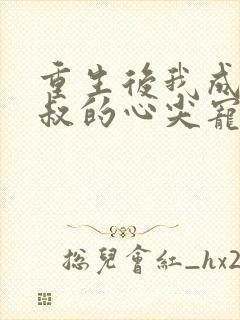 重生後我成
叔的心尖寵
总兒會紅_hx2